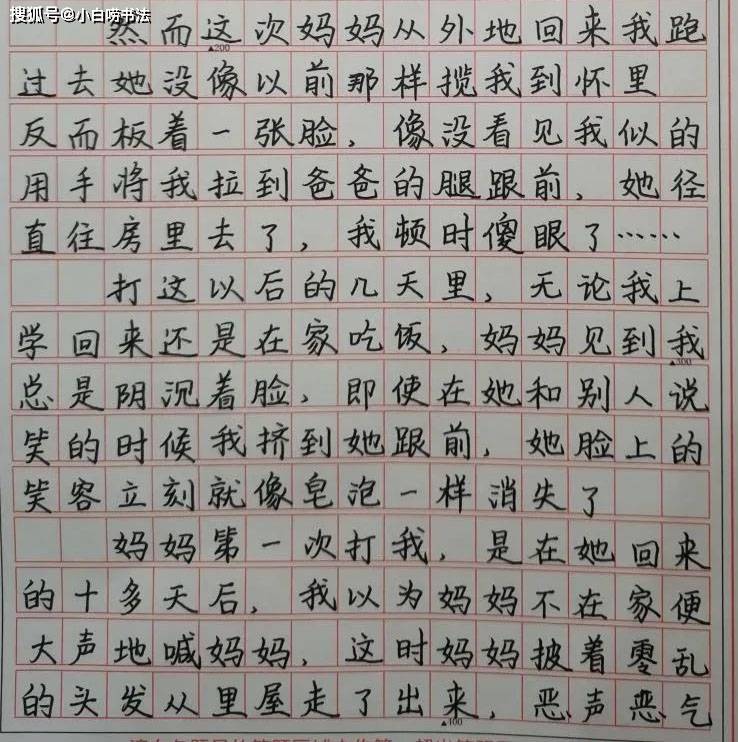 搜狐号@小白唠书法
然而这次妈妈从外地回来我跑
▲200
过去她没像以前那样揽我到怀里
反而板着一张脸，像没看见我似的
用手将我拉到爸爸的腿跟前，她径
直往房里去了，我顿时傻眼了……
打这以后的几天里，无论我上
学回来还是在家吃饭，妈妈见到我
▲300
总是阴沉着脸，即使在她和别人说
笑的时候我挤到她跟前，她脸上的
笑容立刻就像皂泡一样消失了
妈妈第一次打我，是在她回来
的十多天后，我以为妈妈不在家便
大声地喊妈妈，这时妈妈披着零乱
的头发从里屋走了出来，恶声恶气
▲100